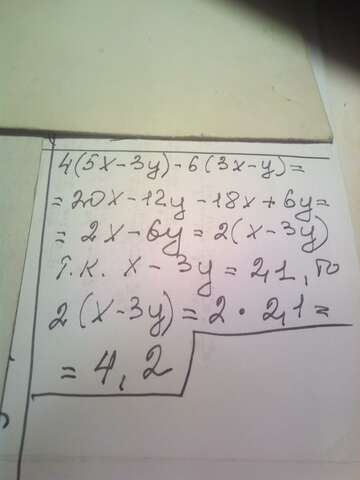 4(5x-3y)-6(3x-y)=
=20x-12y-18x+6y=
=2x-6y=2(x-3y)
Т.К. x-3y=2,1, то
2(x-3y)=2·2,1=
=4,2